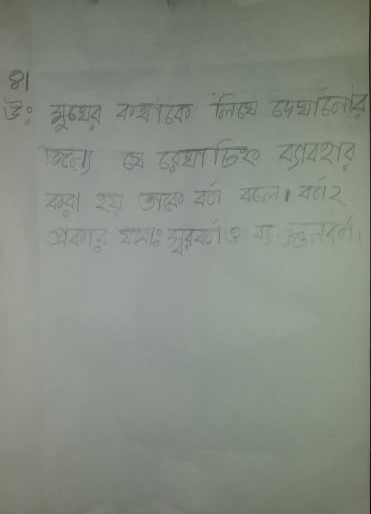 ৪।
উঃ মুখের কথাকে লিখে দেখানোর
জন্যে যে রেখাচিহ্ন ব্যাবহার
করা হয় তাকে বর্ন বলে। বর্ন ২
প্রকার যথাঃ স্বরবর্ন ও ব্যাঞ্জনবর্ন।